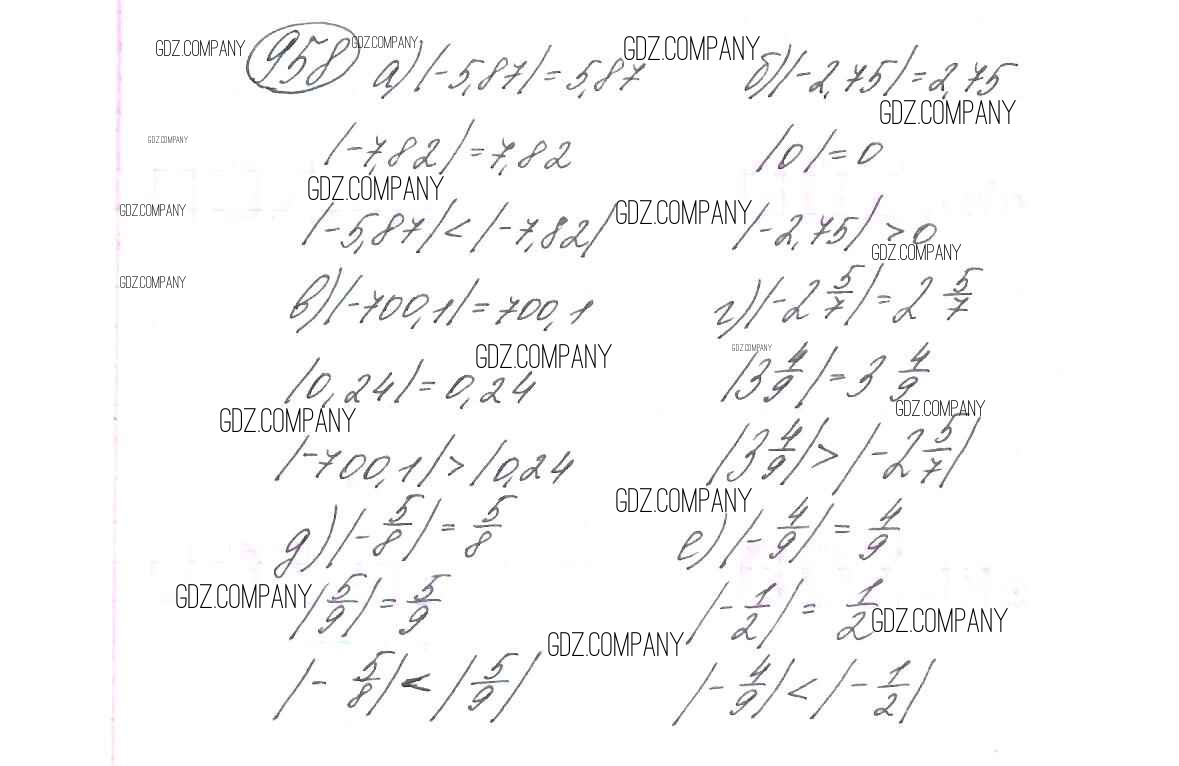 GDZ.COMPANY 958 GDZ.COMPANY а) |-5,87| = 5,87 GDZ.COMPANY б) |-2,75| = 2,75
GDZ.COMPANY
GDZ.COMPANY |-7,82| = 7,82 |0| = 0
GDZ.COMPANY
GDZ.COMPANY |-5,87| < |-7,82| GDZ.COMPANY |-2,75| > 0
GDZ.COMPANY
GDZ.COMPANY в) |-700,1| = 700,1 г) |-2 5/7| = 2 5/7
GDZ.COMPANY GDZ.COMPANY
|0,24| = 0,24 |3 4/9| = 3 4/9
GDZ.COMPANY GDZ.COMPANY
|-700,1| > |0,24 |3 4/9| > |-2 5/7|
GDZ.COMPANY
д) |-5/8| = 5/8 е) |-4/9| = 4/9
GDZ.COMPANY |5/9| = 5/9 |-1/2| = 1/2 GDZ.COMPANY
GDZ.COMPANY
|-5/8| < |5/9| |-4/9| < |-1/2|